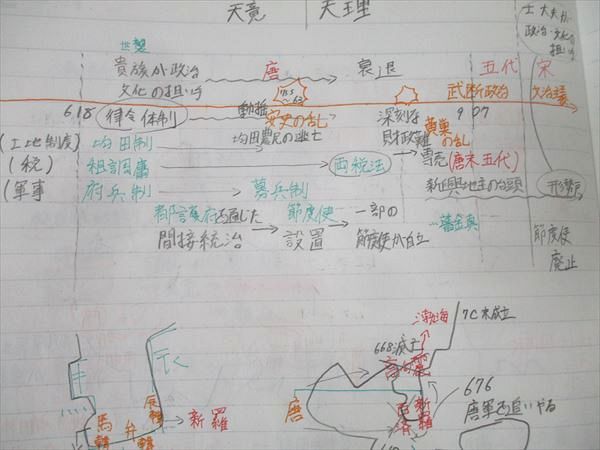 天竟 天理
士大夫が
政治・文化の
担い手
世襲
貴族が政治
文化の担い手
唐
衰退
五代
宋
755
~63
武断政治
文治主義
618
律令体制
動揺
安史の乱
深刻な
財政難
黄巣
の乱
907
(土地制度)
均田制
均田農民の逃亡
塩売
(唐末五代)
(税)
租調庸
両税法
新興地主の台頭
形勢戸
(軍事
府兵制
募兵制
都護府を通した
間接統治
節度使
設置
一部の
節度使が自立
…藩鎮
節度使
廃止
渤海
7C末成立
668滅亡
高句麗
676
唐軍を追いやる
辰韓
馬韓
弁韓
新羅
唐
百済
新羅